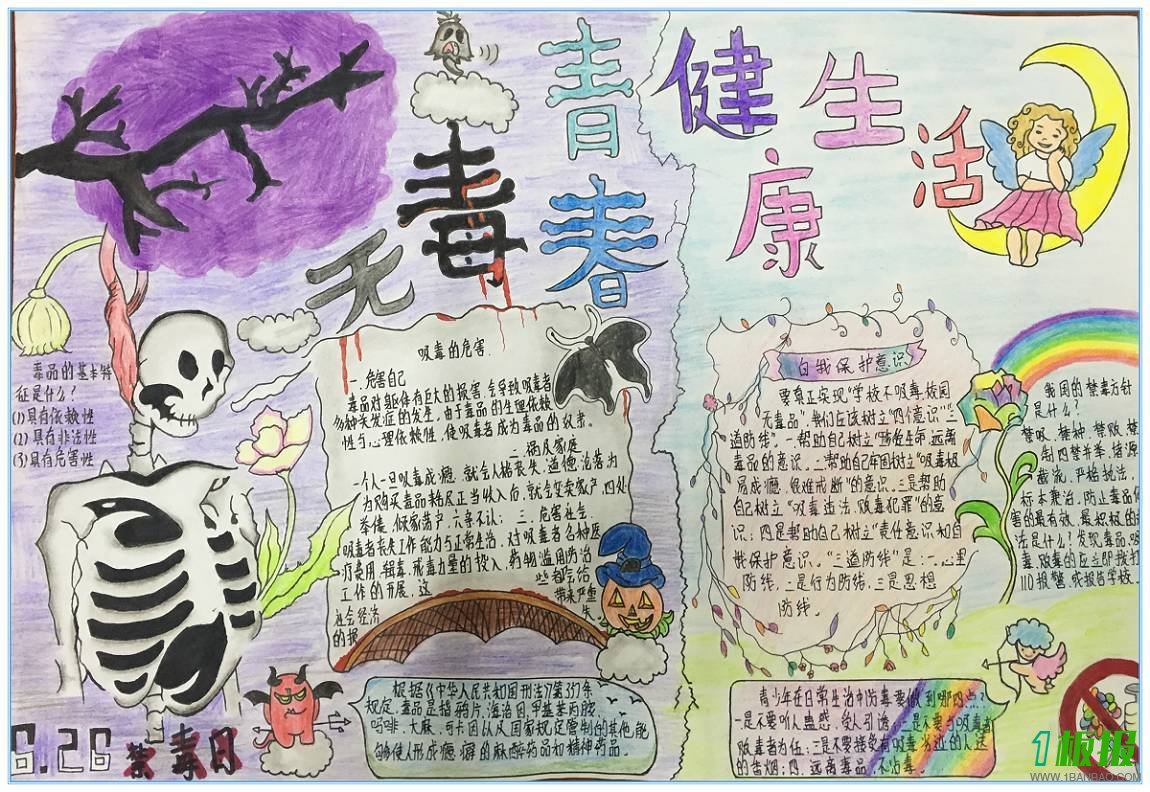 无毒青春
健康生活
毒品的基本特
征是什么？
(1)具有依赖性
(2)具有非法性
(3)具有危害性
吸毒的危害
一.危害自己
毒品对躯体有巨大的损害,会导致吸毒者
多种并发症的发生,由于毒品的生理依赖
性与心理依赖性,使吸毒者成为毒品的奴隶。
二.祸及家庭
一个人一旦吸毒成瘾,就会人格丧失、道德沦落为
为购买毒品耗尽正当收入后,就会变卖家产,四处
举债,倾家荡产,六亲不认; 三.危害社会
吸毒者丧失工作能力与正常生活,对吸毒者各种医
疗费用,缉毒,戒毒力量的投入,药物滥用防治
工作的开展,这些都给
社会经济带来严重
的损失。
根据《中华人民共和国刑法》第357条
规定,毒品是指鸦片、海洛因、甲基苯丙胺、
吗啡、大麻、可卡因以及国家规定管制的其他能
够使人形成瘾癖的麻醉药品和精神药品。
6.26禁毒日
自我保护意识
要真正实现“学校不吸毒,校园
无毒品”,我们应该树立“四个意识”“三
道防线”。一.帮助自己树立“珍爱生命,远离
毒品的意识。二帮助自己牢固树立“吸毒极
易成瘾,很难戒断”的意识。三是帮助
自己树立“吸毒违法,贩毒犯罪”的意
识;四是帮助自己树立“责任意识和自
我保护意识。“三道防线”是:一.心里
防线,二是行为防线,三是思想
防线。
我国的禁毒方针
是什么?
禁吸、禁种、禁贩、禁
制四禁并举,堵源
截流,严格执法,
标本兼治,防止毒品危
害的最有效、最积极的办
法是什么?发现毒品、吸
毒、贩毒的应立即拨打
110报警,或报告学校。
青少年在日常生活中防毒要做到哪四点?
一是不要听人蛊惑,受人引诱;二是不要与吸毒者
吸毒者为伍;三是不要接受有吸毒劣迹的人送
的香烟;四.远离毒品,不沾毒。
1板报
WWW.1BANBAO.COM